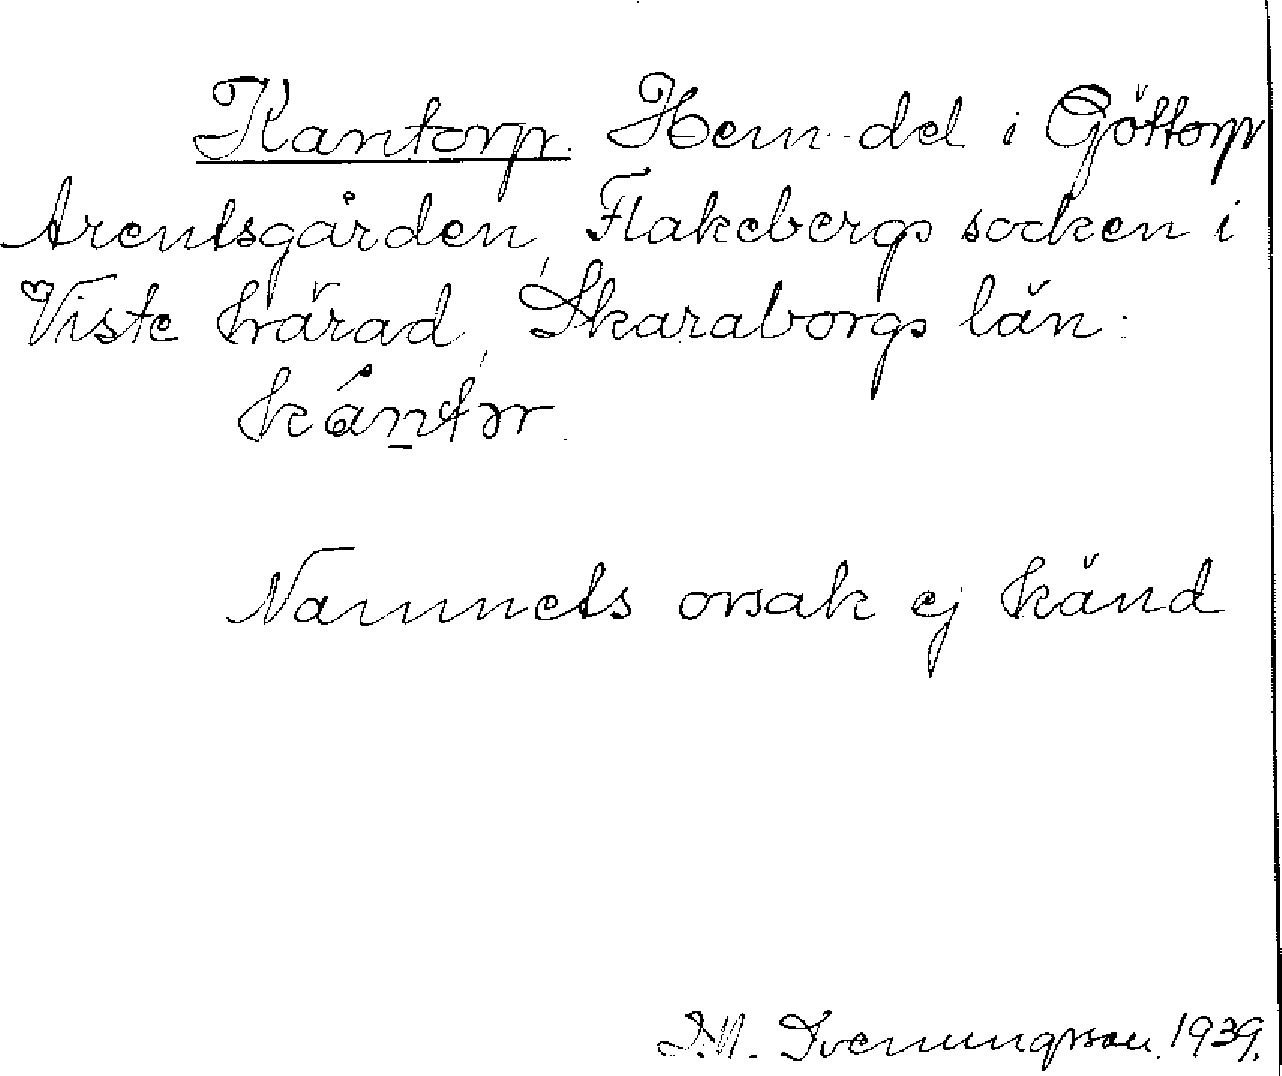 Kantorp. Hem.del i Göttorp
Arentsgården, Flakebergs socken i
Viste härad, Skaraborgs län:
kántər.
Namnets orsak ej känd
J.M. Svenungsson. 1939.